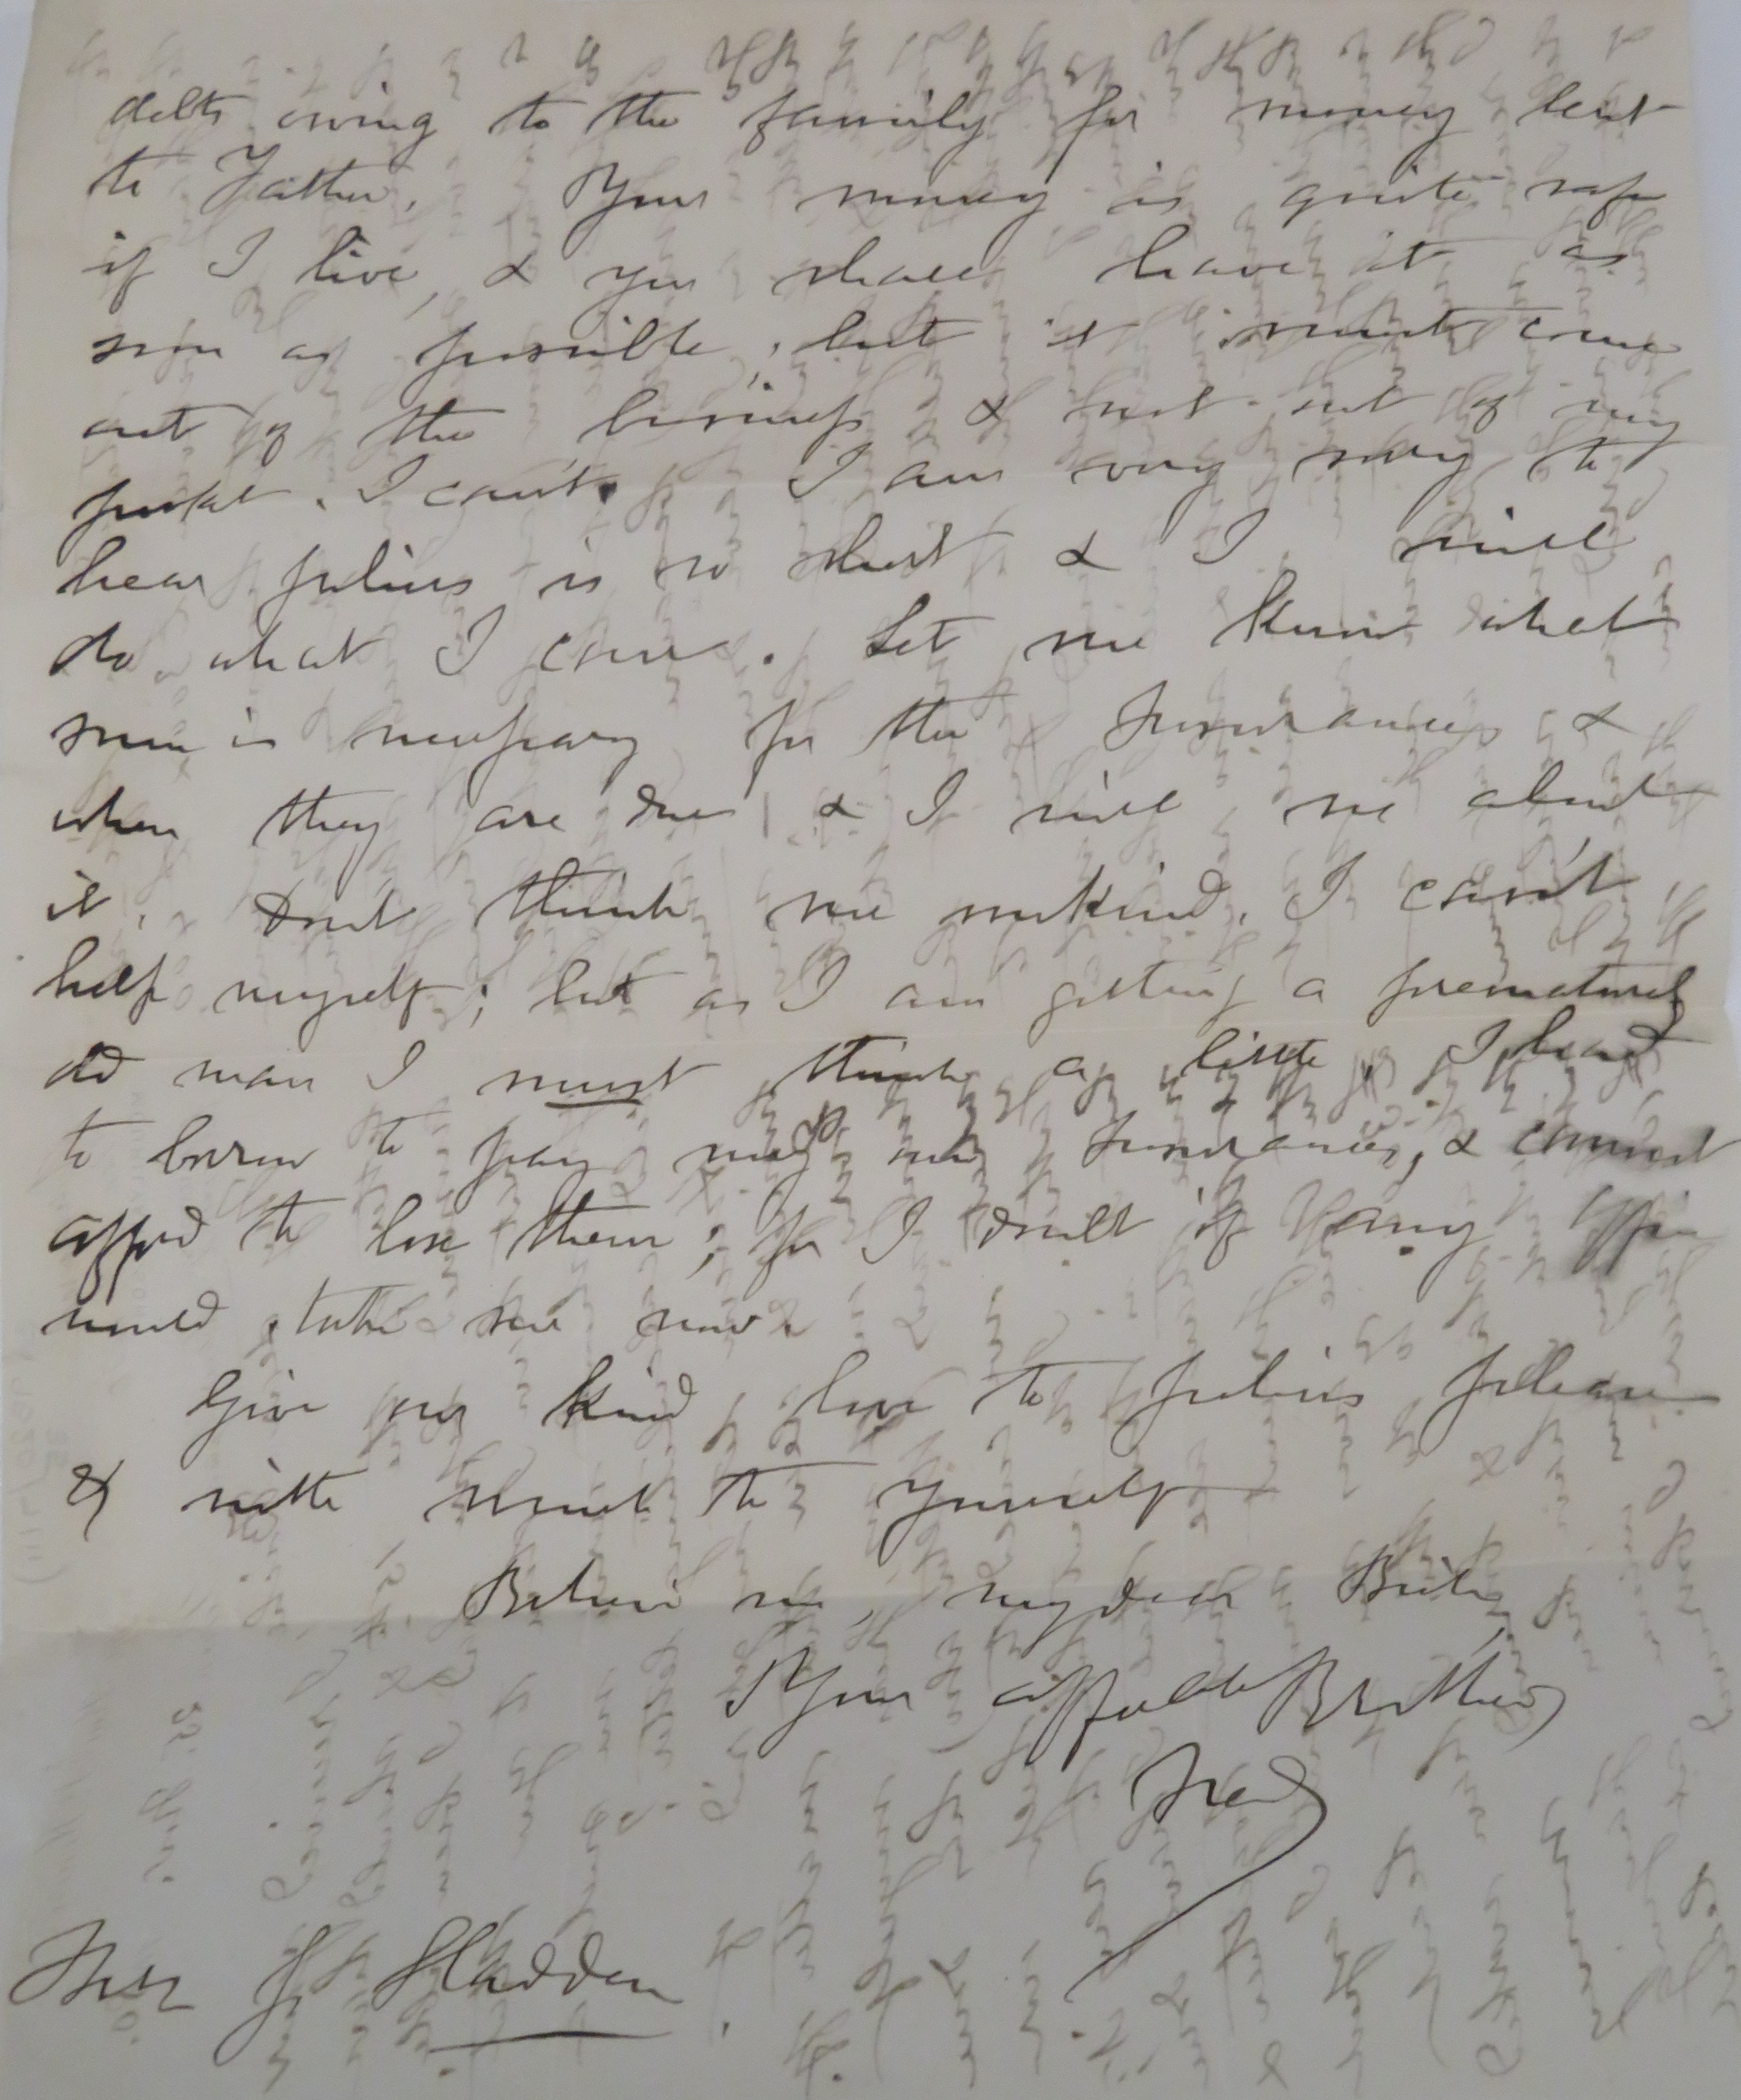 debts owing to the family for money lent
to Father. Your money is quite safe
if I live, & you shall have it as
soon as possible, but it must come
out of the business & not out of my
pocket. I can't. I am very sorry to
hear Julius is so short & I will
do what I can. Let me know what
sum is necessary for the Insurances &
when they are due & I will see about
it. Don't think me unkind. I can't
help myself; but as I am getting a prematurely
old man I must think a little. I had
to borrow to pay my own Insurances, & cannot
afford to lose them; for I doubt if any office
would take me now.
Give my kind love to Julius please
& with much to yourself
Believe me, my dear
Your affecate Brother
Fred
Mrs J. Sladden